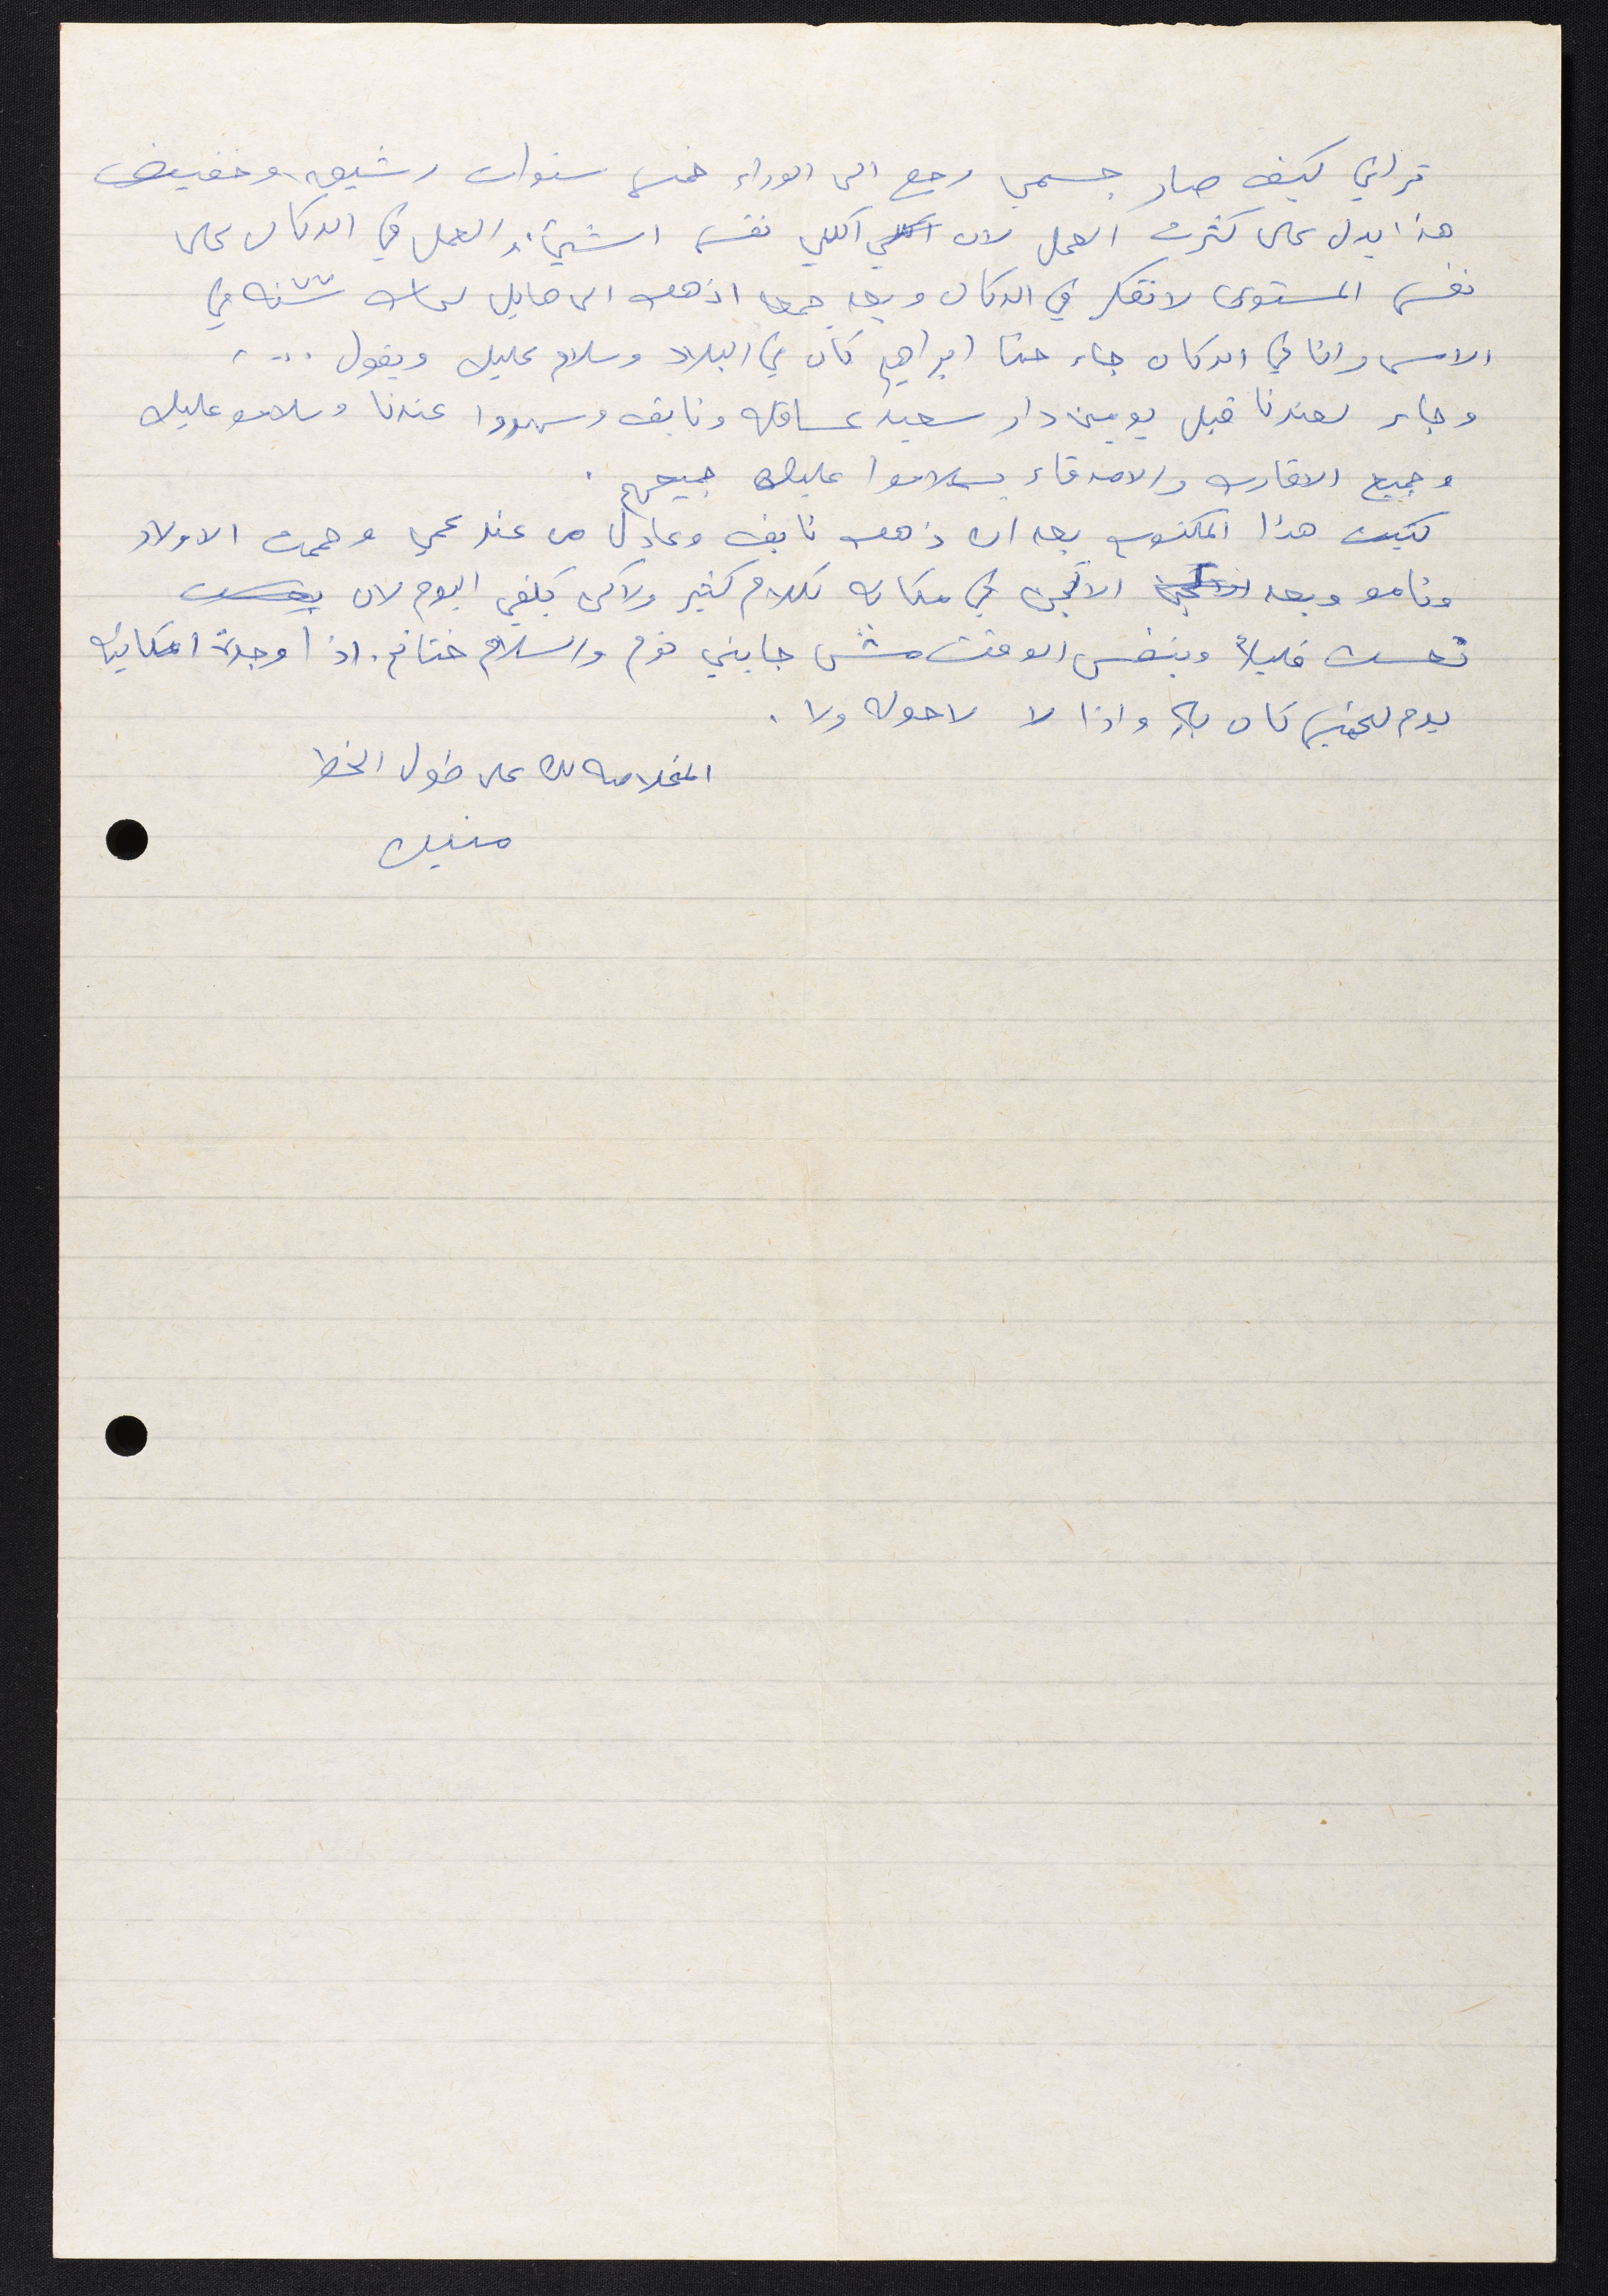 تراني كيف صار جسمي رجع الى الوراء خمس سنوات رشيق وخفيف
هذا يدل على كثرت العمل لان اكلي نفس الشيئ والعمل في الدكان على
نفس المستوى لا تفكر في الدكان وبعد جمعه اذهب الى شنه في
الامس وانا في الدكان جاء حنا ابراهيم كان في البلاد وسلام عليك ويقول ....
وجاء لعندنا قبل يومين دار سعيد عساقله ونايف وسهروا عندنا وسلامو عليك
وجميع الاقارب والاصدقاء يسلاموا عليك جميعهم .
كتبت هذا المكتوب بعد ان ذهب نايف وعادل من عند عمي وحممت الاولاد
ونامو وبعد في مكانه كلام كثير ولاكن بكفي اليوم لان
نعست قليلاً وبنفس الوقت مش جايني نوم والسلام ختام . اذا وجدة امكانيه
يوم الخميس كان به واذا لا لا حوله ولا .
المخلاصه لك على طول الخط